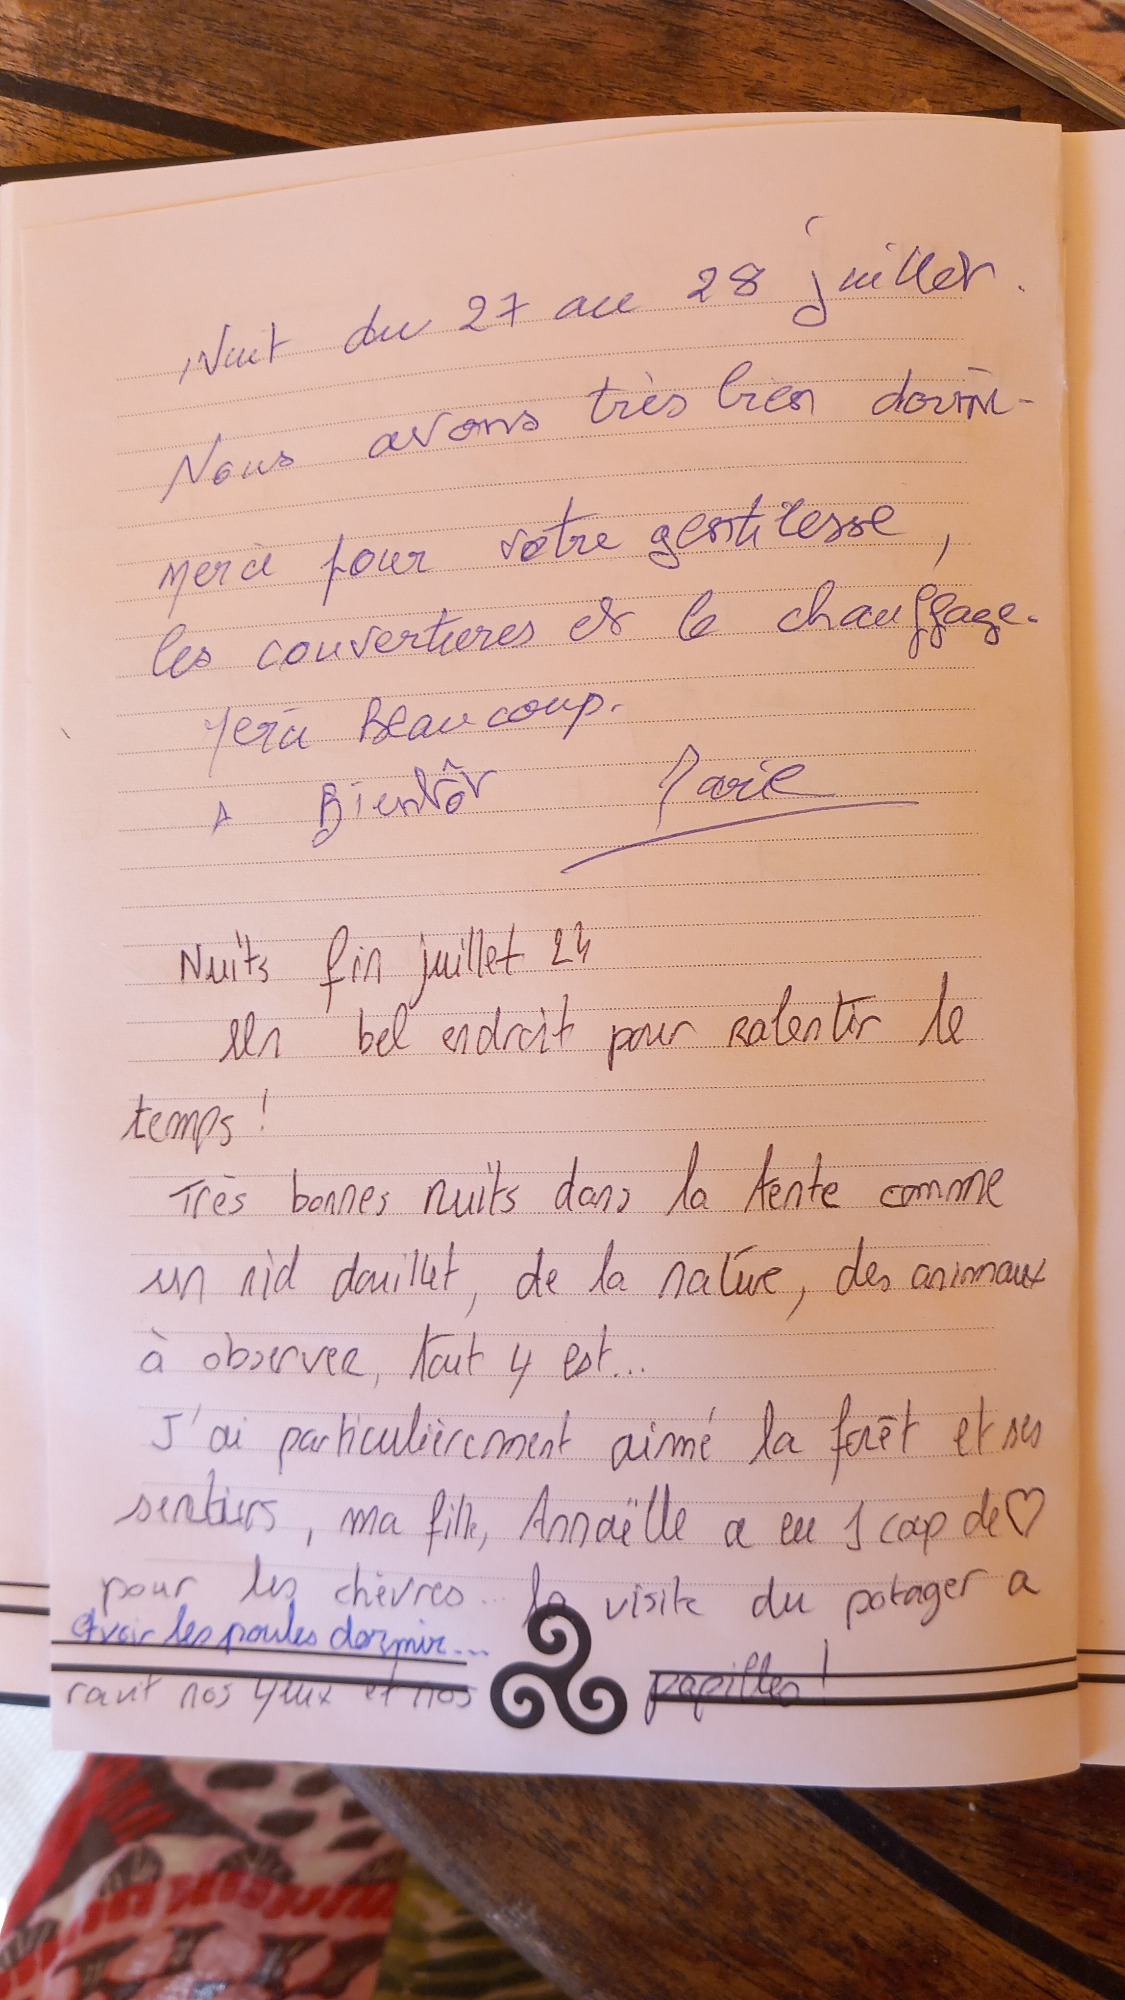 Nuit du 27 au 28 juillet.
Nous avons très bien dormi.
Merci pour votre gentillesse,
les couvertures et le chauffage.
Merci Beaucoup.
A Bientôt Marie
Nuits fin juillet 24
Un bel endroit pour ralentir le
temps !
Très bonnes nuits dans la tente comme
un nid douillet, de la nature, des animaux
à observer, tout y est...
J'ai particulièrement aimé la forêt et ses
sentiers, ma fille, Annaëlle a eu 1 cap de ♡
pour les chèvres... la visite du potager a
et voir les poules dormir...
ravit nos yeux et nos papilles !